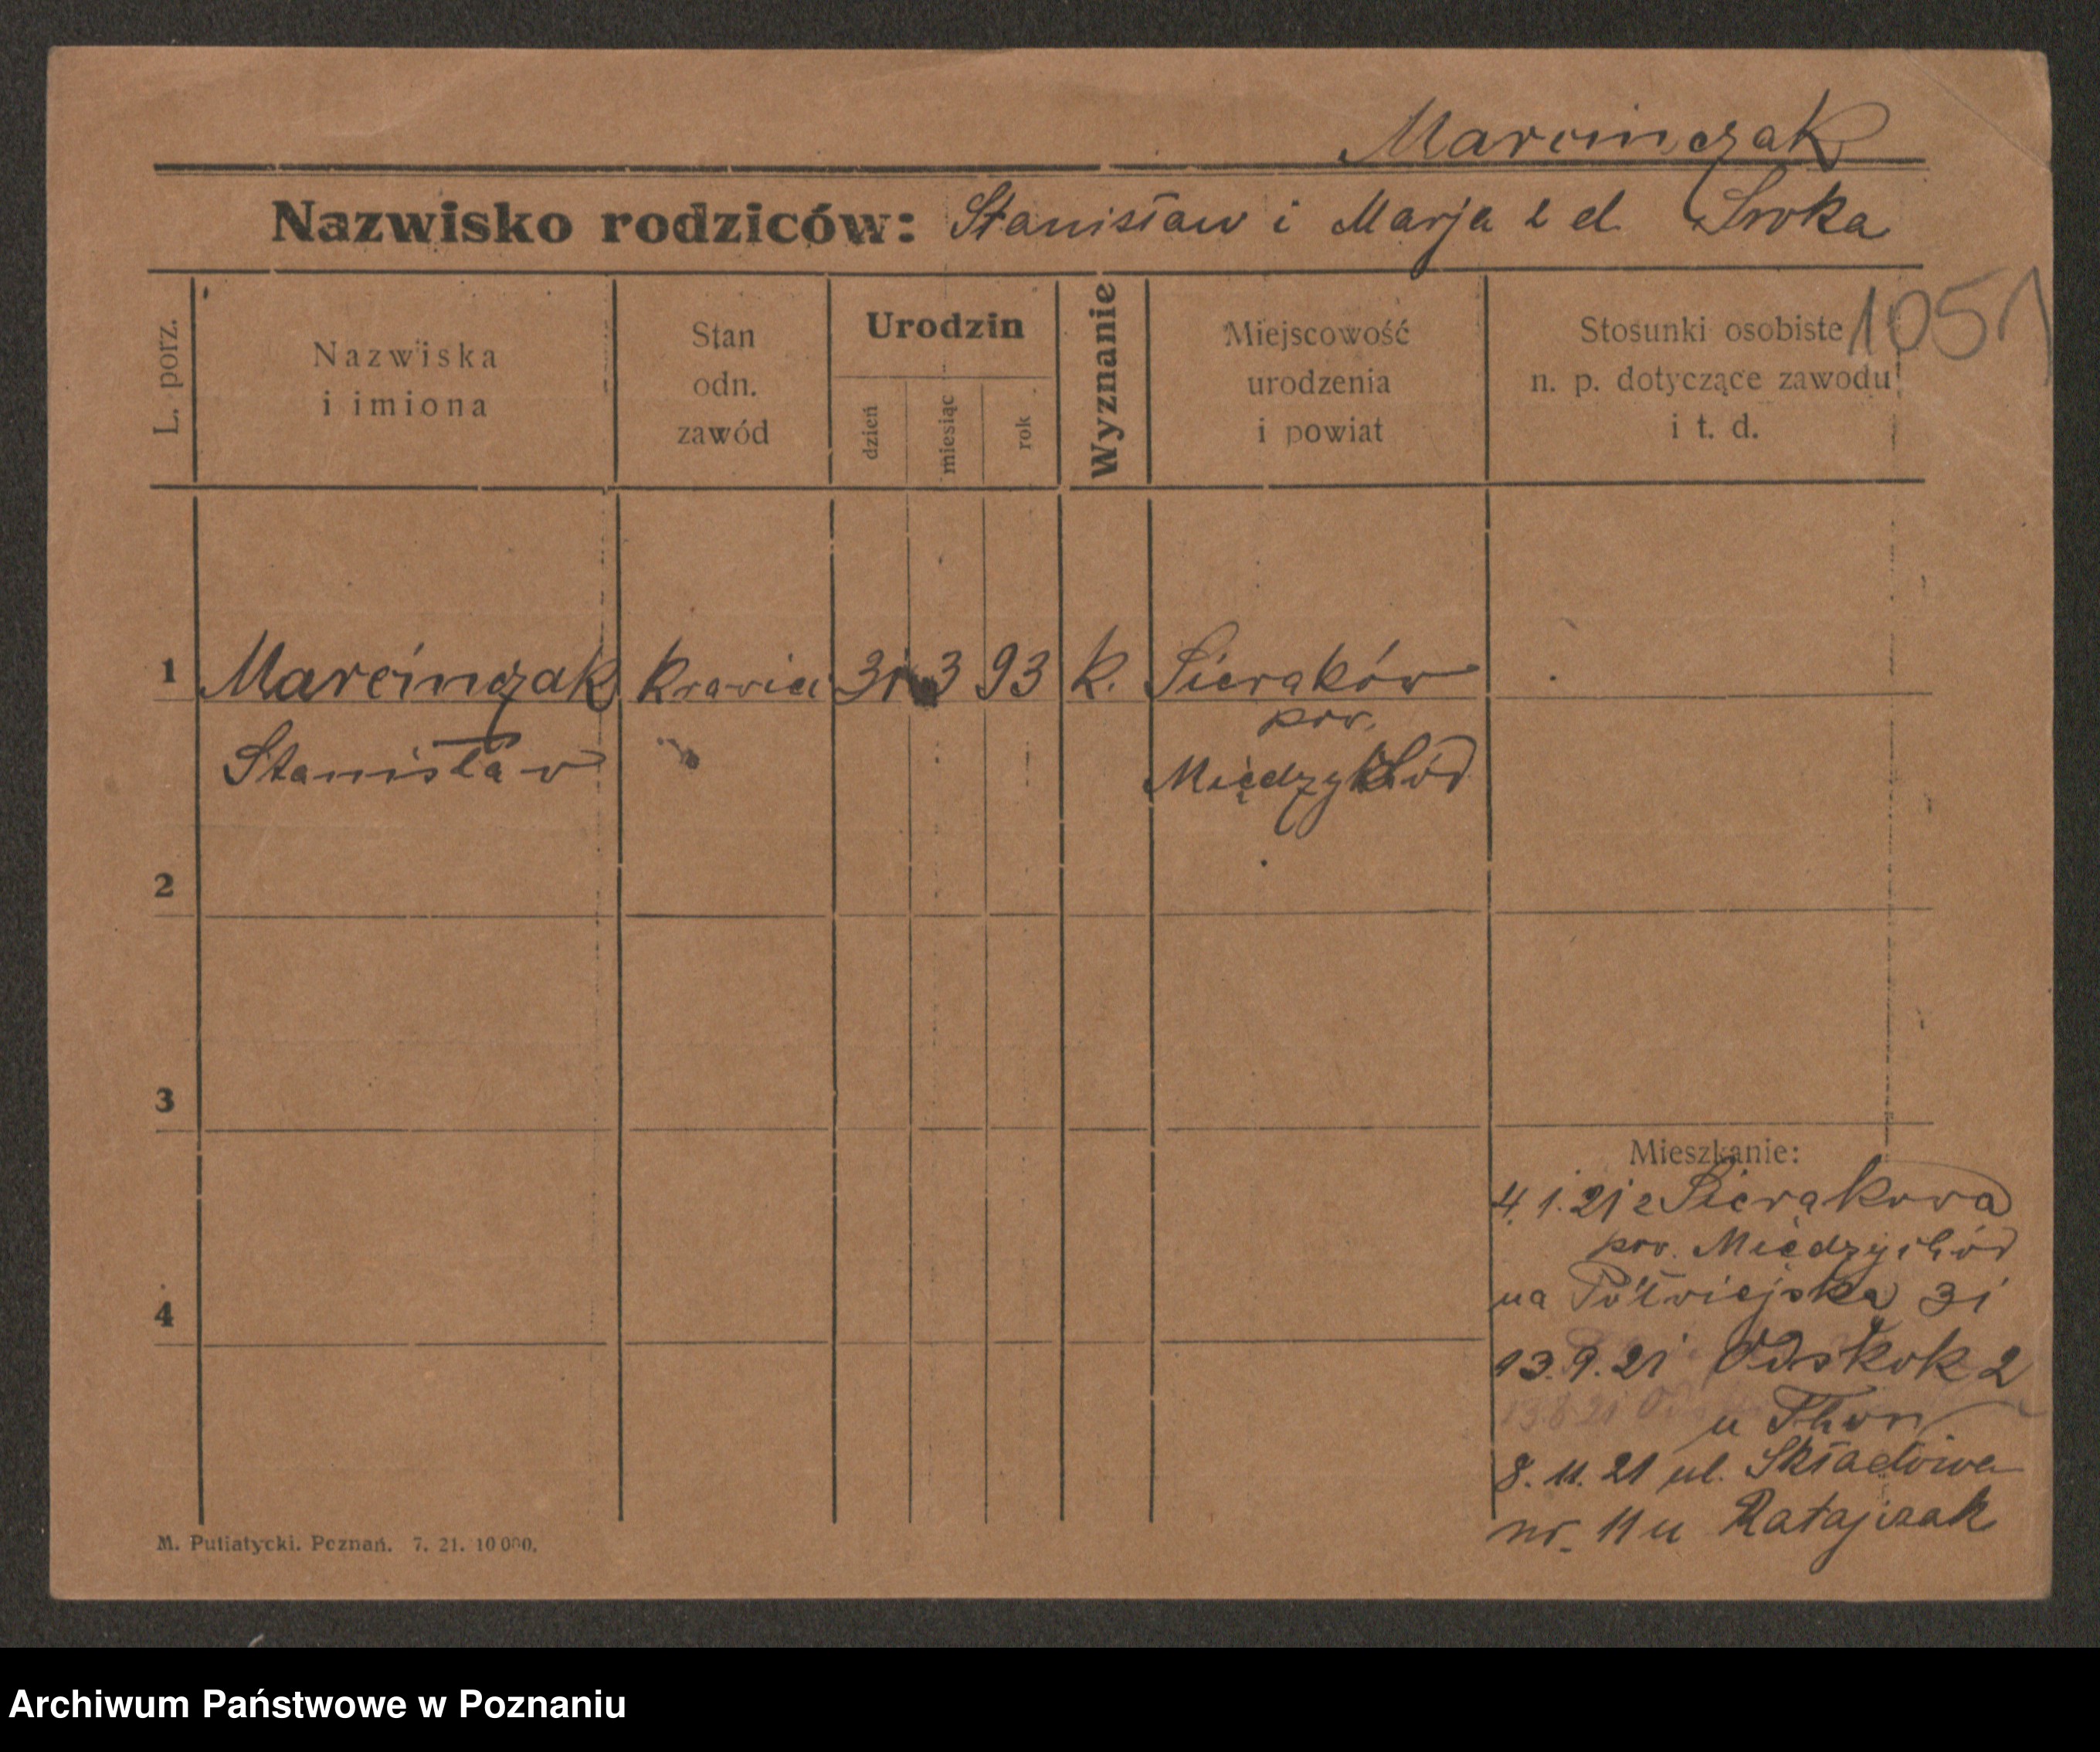 Marcinczak
Nazwisko rodziców: Stanisław i Marja z d. Sroka
1051
L. porz.
Nazwiska
i imiona
Stan
odn.
zawód
Urodzin
dzień
miesiąc
rok
Wyznanie
Miejscowość
urodzenia
i powiat
Stosunki osobiste
n. p. dotyczące zawodu
i t. d.
1 Marcinczak krawiec 31 3 93 k. Sieraków
pow.
Stanisław Międzychód
2
3
Mieszkanie:
4. 1. 21 z Sierakowa
pow. Międzychód
na Półwiejska 31
4
13. 9. 21 Odskok 2
13. 8. 21
u Thorn
8. 11. 21 ul. Składowa
nr. 11 u Ratajczak
M. Putiatycki. Poznań. 7. 21. 10 000.
Archiwum Państwowe w Poznaniu